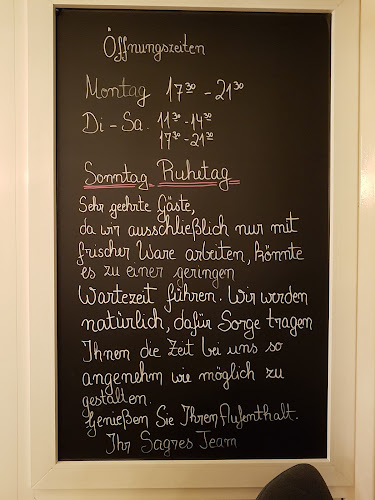 Öffnungszeiten
Montag 17³⁰ - 21³⁰
Di - Sa. 11³⁰ - 14³⁰
17³⁰ - 21³⁰
Sonntag Ruhetag
Sehr geehrte Gäste,
da wir ausschließlich nur mit
frischer Ware arbeiten, könnte
es zu einer geringen
Wartezeit führen. Wir werden
natürlich, dafür Sorge tragen
Ihnen die Zeit bei uns so
angenehm wie möglich zu
gestalten.
Genießen Sie Ihren Aufenthalt.
Ihr Sagres Team